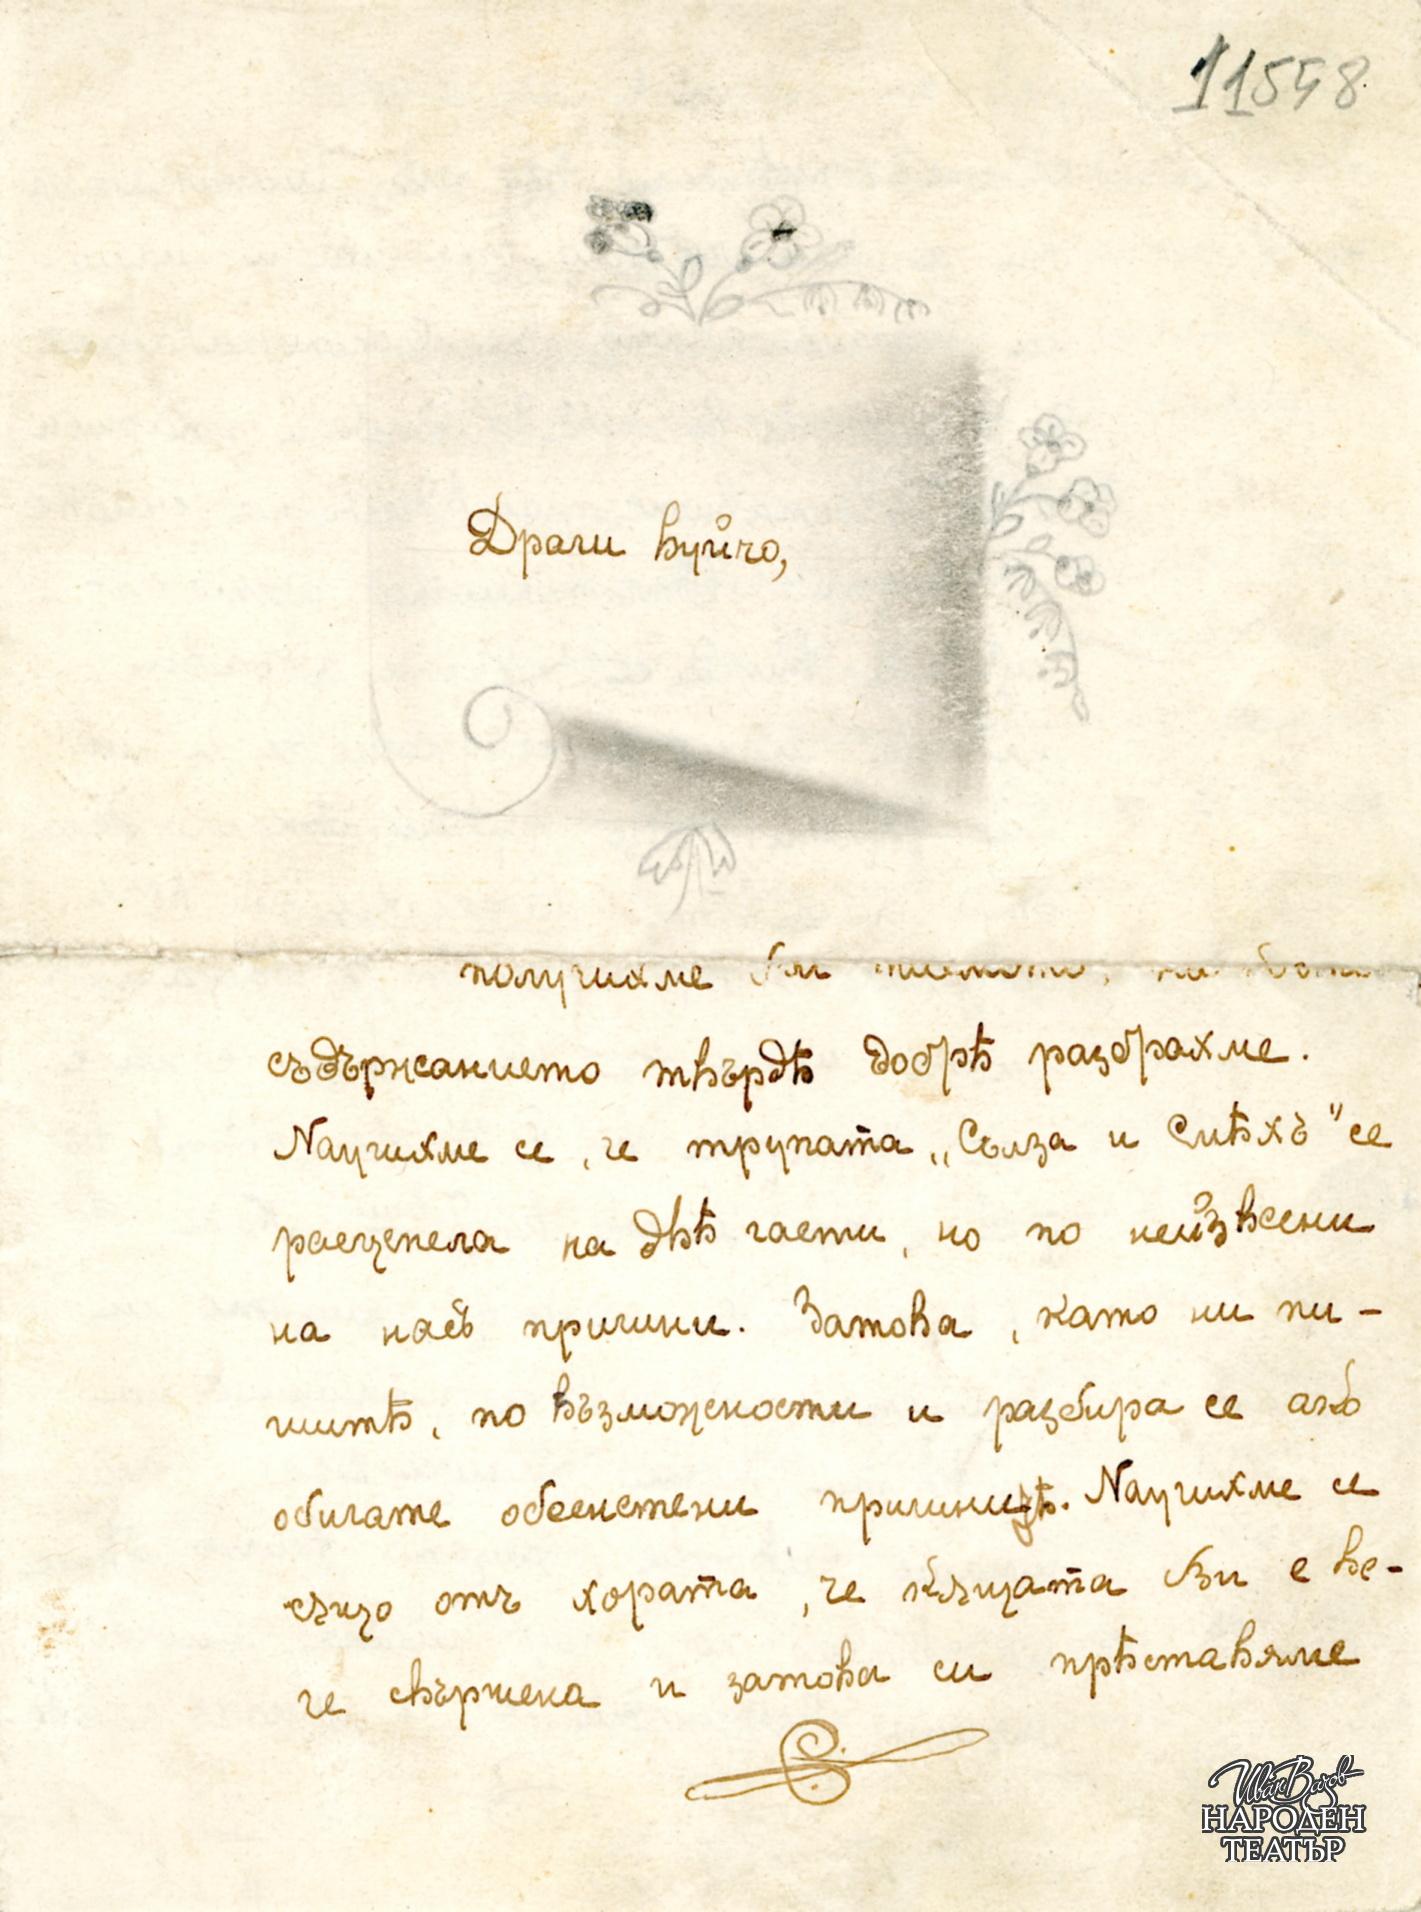 11558
Драги вуйчо,
получихме
съдържанието твърдѣ добрѣ разбрахме.
Научихме се, че трупата „Сълза и Смѣхъ" се
расцепела на двѣ части, но по неизвесни
на насъ причини. Затова, като ни пи-
шитѣ, по възможности и разбира се ако
обичате обеснстени причинитѣ. Научихме се
също отъ хората, че кѫщата Ви е ве-
че свършена и затова си прѣставяме
Иван Вазов
НАРОДЕН
ТЕАТЪР